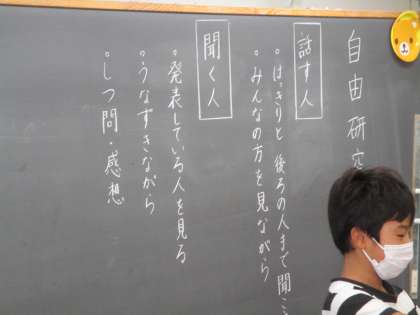 自由研究
話す人
・はっきりと後ろの人まで聞こ
・みんなの方を見ながら
聞く人
・発表している人を見る
・うなずきながら
・しつ問・感想